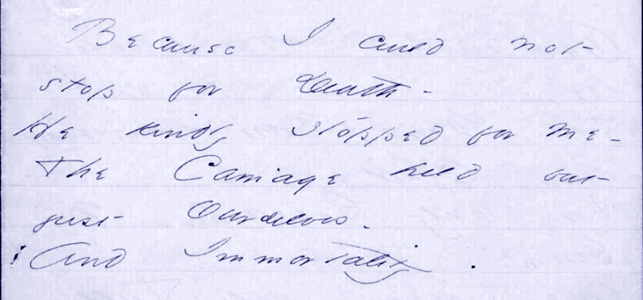 Because I could not
stop for Death -
He kindly stopped for me -
The Carriage held but
just Ourselves -
And Immortality .